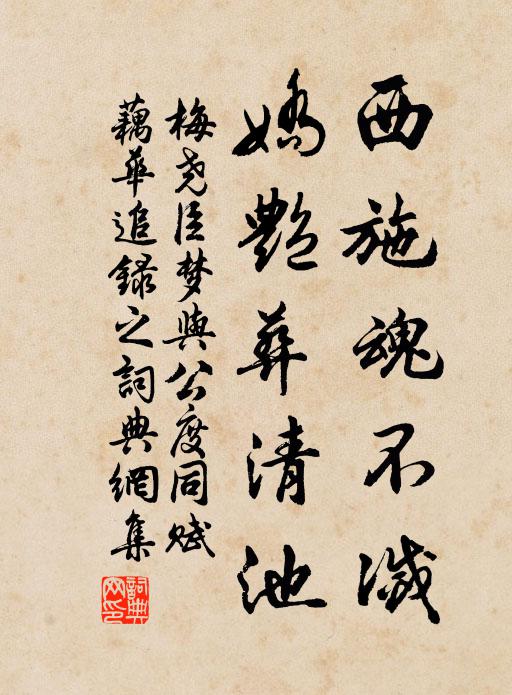 西施魂不滅
嬌艷葬清池
梅尧臣梦與公度同赋
藕華追録之詞典網集
詞典
网印